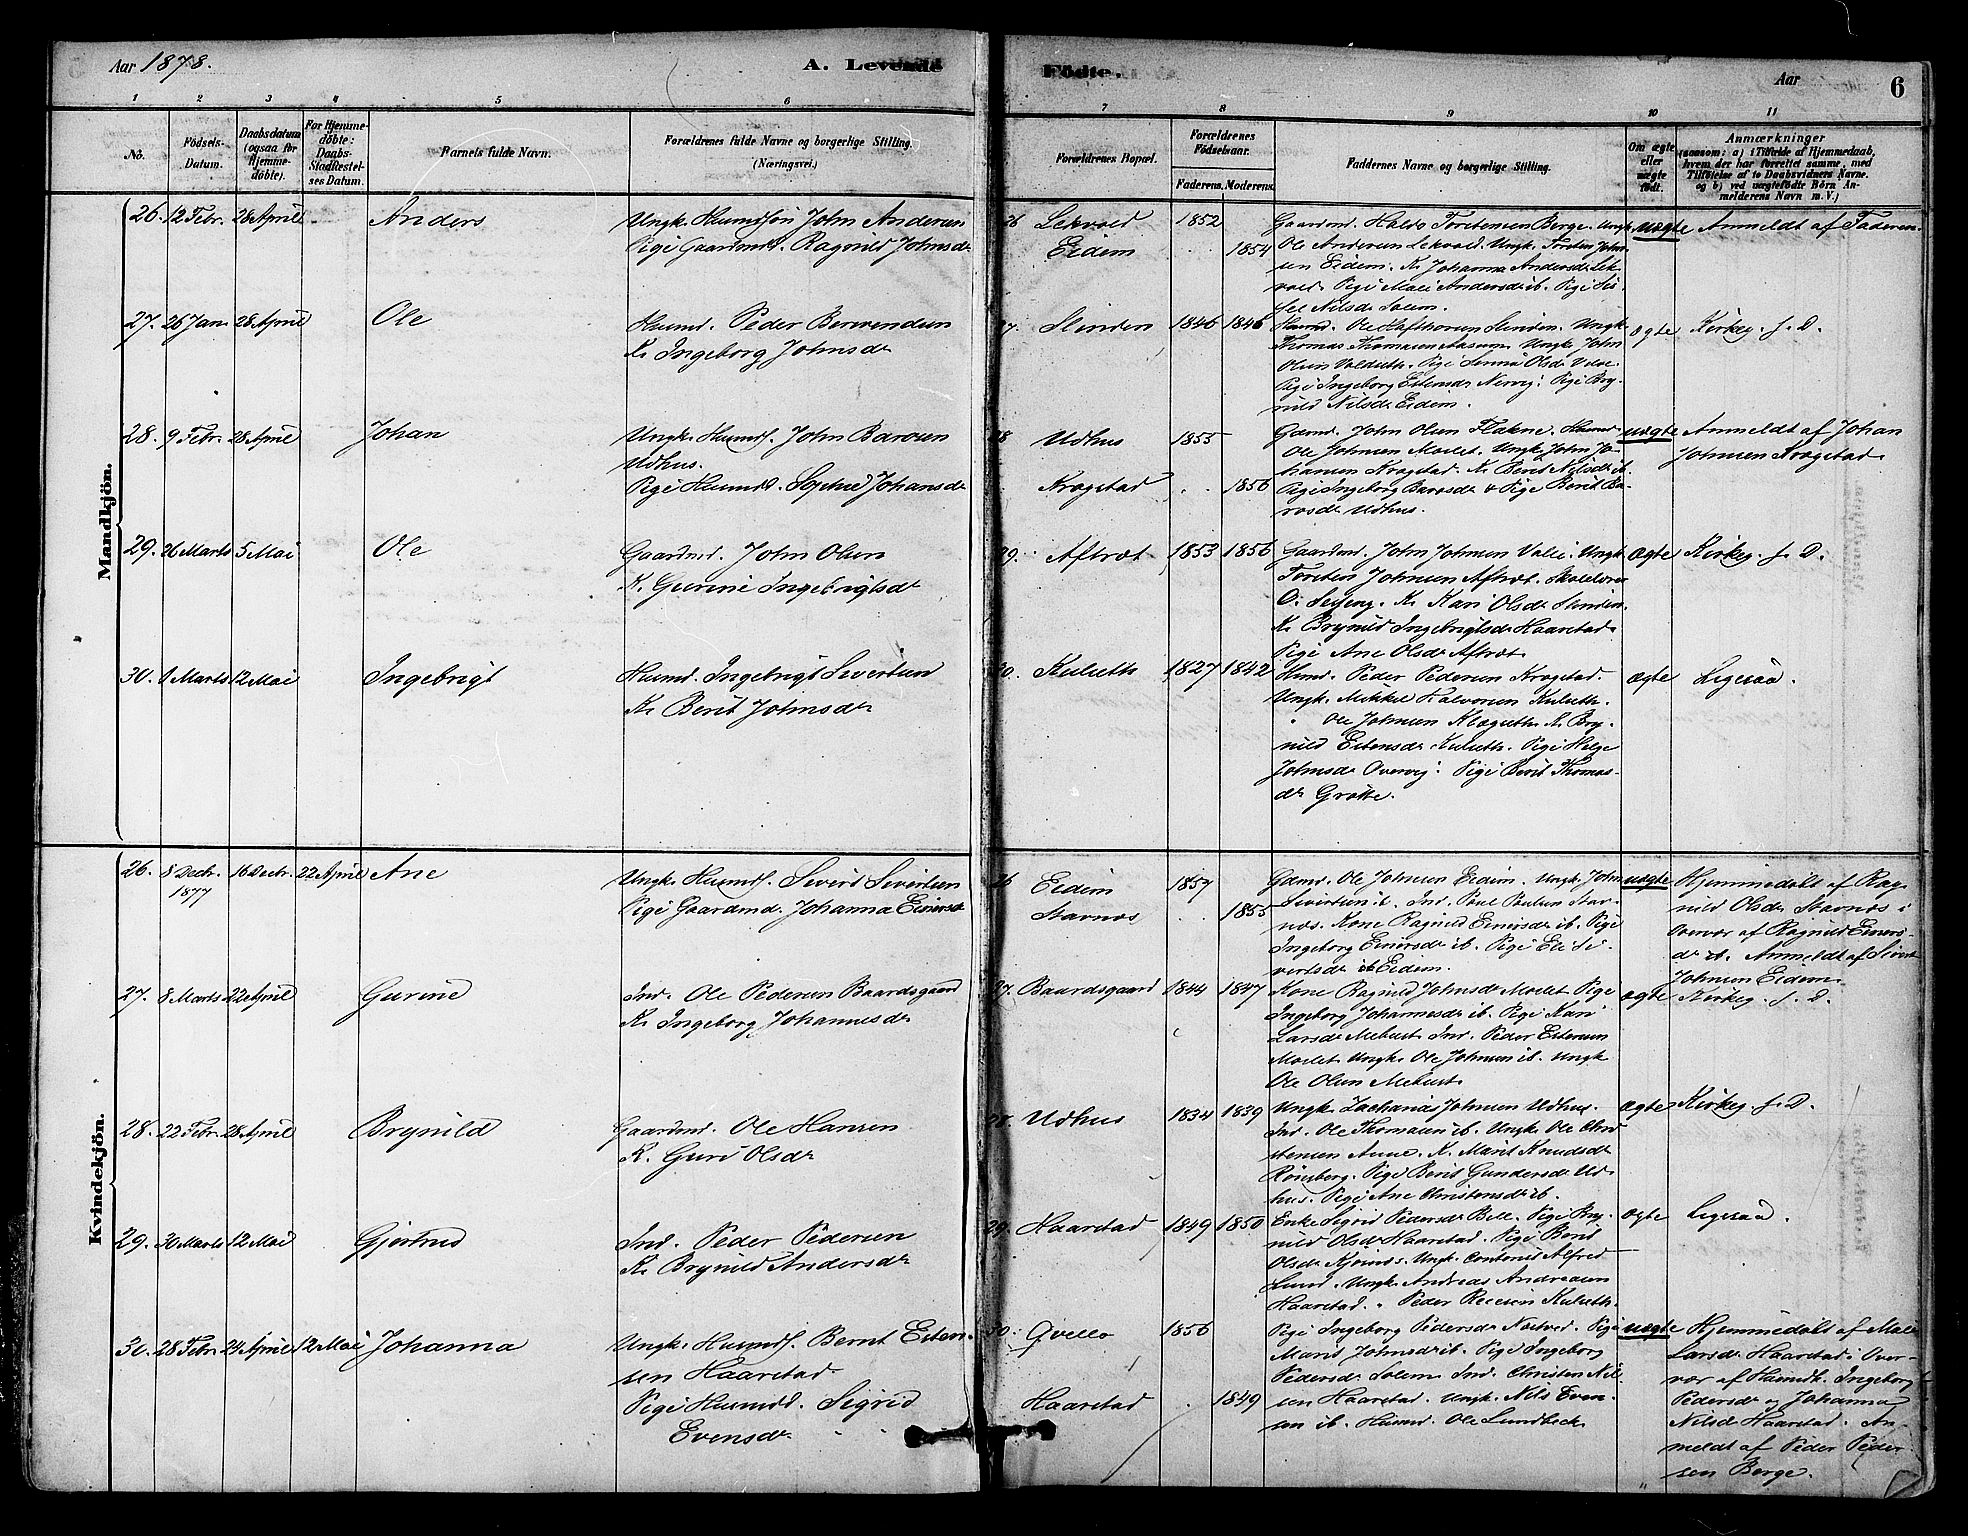 Aar 1878.
A. Levende Födte.
Aar
6
1 2 3 4 5 6 7 8 9 10 11
No.
Födsels-Datum.
Daabsdatum (ogsaa for Hjemme-döbte).
For Hjemme-döbte: Daabs-Stadfæstel-ses Datum.
Barnets fulde Navn.
Forældrenes fulde Navne og borgerlige Stilling. (Næringsvei.)
Forældrenes Bopæl.
Forældrenes Födselsaar.
Faderens. Moderens.
Faddernes Navne og borgerlige Stilling.
Om ægte eller uægte födt.
Anmærkninger
(saasom: a) i Tilfælde af Hjemmedaab, hvem der har forrettet samme, med Tilföielse af to Daabsvidners Navne. og b) ved uægtefödte Börn Anmelderens Navn m. V.)
Mandkjön.
26. 12 Febr. 28 April Anders
Ungk. Husmdssön John Andersen
Pige Gaardmd. Ragnild Johnsdr
26 Lekvold 1852
Eidem 1854
Gaardmd. Haldo Torstensen Berge. Ungk
Ole Andersen Lekvold. Ungk. Torsten John-
sen Eidem. K. Johanna Andersdr Lek-
vold. Pige Mali Andersdr ib. Pige Sis-
sel Nilsdr Solem.
uægte Anmeldt af Faderen.
27. 26 Jan. 28 April Ole
Husmd. Peder Berendsen
K. Ingeborg Johnsdr
27. Slinden 1846 1846
Husmd. Ole Hafthorsen Slinden. Ungk
Thomas Thomasen Aasum. Ungk. John
Olsen Valseth. Pige Olsdr
Pige Ingeborg Estensdr Nervig. Pige Bry-
nild Nilsdr Eidem.
ægte Kirkeg. f. D.
28. 9 Febr. 28 April Johan
Ungk. Husmds. John Barosen
Udhus.
Pige Husmdd. Sophie Johansdr
28 Udhus 1855
Krogstad 1856
Gdmd. John Olsen Flakne. Husmd
Ole Johnsen Moslet. Ungk. John Jo-
hansen Krogstad. K. Berit Nilsdr ib.
Pige Ingeborg Barosdr & Pige Berit Ba-
rosdr Udhus.
uægte Anmeldt af Johan
Johnsen Krogstad.
29. 26 Marts 5 Mai Ole
Gaardmd. John Olsen
K. Gurine Ingebrigtsdr
29. Aftret 1853 1856
Gaardmd. John Johnsen Ungk
Torsten Johnsen Aftret. Skolelærer
O. K. Kari Olsdr Slinden.
K. Brynild Ingebrigtsdr Haarstad.
Pige Ane Olsdr Aftret.
Ægte Kirkeg. f. D.
30. 1 Marts 12 Mai Ingebrigt
Husmd. Ingebrigt Sivertsen
K. Berit Johnsdr
30. Kulseth 1827 1842
Husmd. Peder Pedersen Krogstad.
Ungk. Mikkel Halvorsen Kulseth.
" Ole Johnsen K. Bry-
nild Estensdr Kulseth. Pige Helge
Johnsdr Overvig. Pige Berit Thomas-
dr Grötte.
Ægte Ligesaa.
Kvindekjön.
26. 8 Decbr. 1877 16 Decbr. 22 April Ane
Ungk. Husmds. Sivert Sivertsen
Pige Gaardmd. Johanna Einersdr
26 Eidem 1857
Stavnos 1855
Gdmd. Ole Johnsen Eidem. Ungk. John
Sivertsen ib. Ind. Poul Poulsen Stav-
nos. Kone Ragnild Einersdr ib. Pige
Ingeborg Einersdr ib. Pige Eli Si-
vertsdr Eidem.
uægte Hjemmedöbt af Rag-
nild Olsdr Stavnos i
Overvær af Ragnild Einers-
dr ib. Anmeldt af Sivert
Johnsen Eidem.
27. 8 Marts 22 April Gurine
Ind. Ole Pedersen Baardsgaard
K. Ingeborg Johannesdr
27. Baardsgaard 1844 1847
Kone Ragnild Johnsdr Moslet Pige
Ingeborg Johannesdr ib. Pige Kari
Larsdr Mebust. Ind. Peder Estensen
Moslet Ungk. Ole Johnsen ib. Ungk
Ole Olsen Mebust.
ægte Kirkeg. f. D.
28. 22 Febr. 28 April Brynild
Gaardmd. Ole Hansen
K. Guri Olsdr
28. Udhus 1834 1839
Ungk. Zacharias Johnsen Udhus.
Ind. Ole Thomasen ib. Ungk. Ole Chri-
stensen Aune. K. Marit Knudsdr
Rönsberg. Pige Berit Gundersdr Ud-
hus. Pige Ane Christensdr ib.
Ægte Kirkeg. f. D.
29. 30 Marts 12 Mai Gjertrud
Ind. Peder Pedersen
K. Brynild Andersdr
29. Haarstad 1849 1850
Enke Sigrid Pedersdr Pige Bry-
nild Olsdr Haarstad. Pige Berit
Olsdr Kjösnes. Ungk. Contorist Alfred
Lund. Ungk. Andreas Andreasen
Haarstad. " Peder Kulseth.
ægte Ligesaa.
30. 28 Febr. 24 April 12 Mai Johanna
Ungk. Husmds. Bernt Esten-
sen Haarstad
Pige Husmdd. Sigrid
Evensdr
30. Qvello 1856
Haarstad 1849
Pige Ingeborg Pedersdr Pige
Marit Johnsdr ib. Pige Ingeborg
Pedersdr Solem. Ind. Christen Nil-
sen Haarstad. Ungk. Nils Even-
sen ib. Husmd. Ole Lundbeck.
uægte Hjemmedöbt af Mali
Larsdr Haarstad i Over-
vær af Husmdk. Ingeborg
Pedersdr og Johanna
Nilsdr Haarstad. An-
meldt af Peder Peder-
sen Berge.